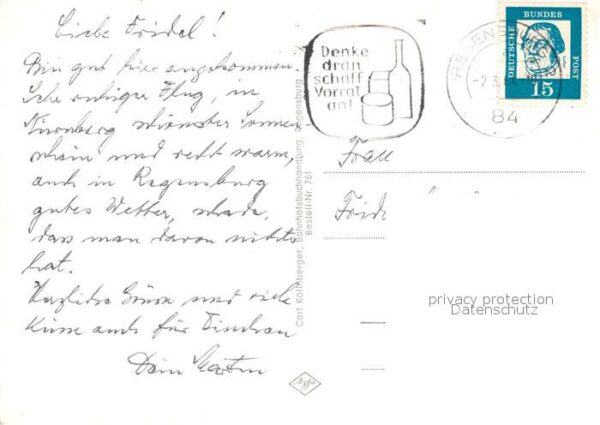 Liebe Friedel!
Bin gut hier angekommen.
Sehr ruhiger Flug, in
Nürnberg schönster Sonnen-
schein und recht warm,
auch in Regensburg
gutes Wetter, schade,
dass man davon nichts
hat.
Herzliche Grüsse und viele
Küsse auch für
Dein
Carl Kollnberger, Bahnhofsbuchhandlung, Regensburg
Bestell-Nr. 761
Denke
dran
schaff
Vorrat
an!
REGENS
84
DEUTSCHE BUNDES POST
15
Frau
privacy protection
Datenschutz
Agfa